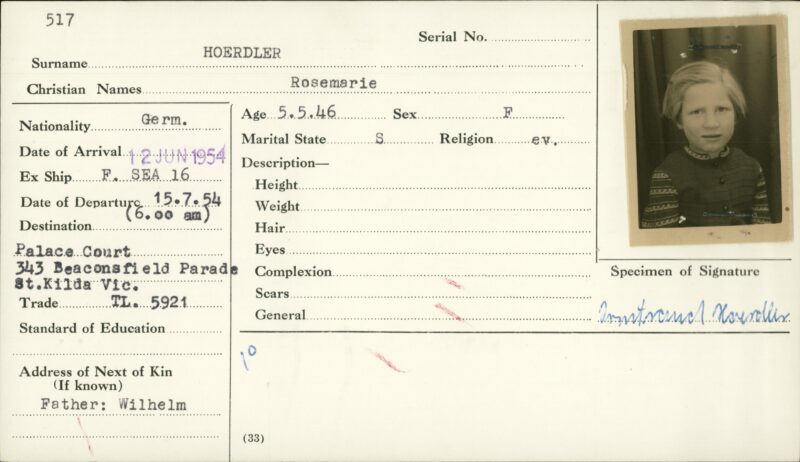 517
Serial No.
Surname HOERDLER
Christian Names Rosemarie
Nationality Germ.
Date of Arrival 12 JUN 1954
Ex Ship F. SEA 16
Date of Departure 15.7.54
(6.oo am)
Destination
Palace Court
343 Beaconsfield Parade
St.Kilda Vic.
Trade TL. 5921
Standard of Education
Address of Next of Kin
(If known)
Father: Wilhelm
Age 5.5.46 Sex F
Marital State S Religion ev.
Description—
Height
Weight
Hair
Eyes
Complexion
Scars
General
10
(33)
Specimen of Signature
Hoerdler